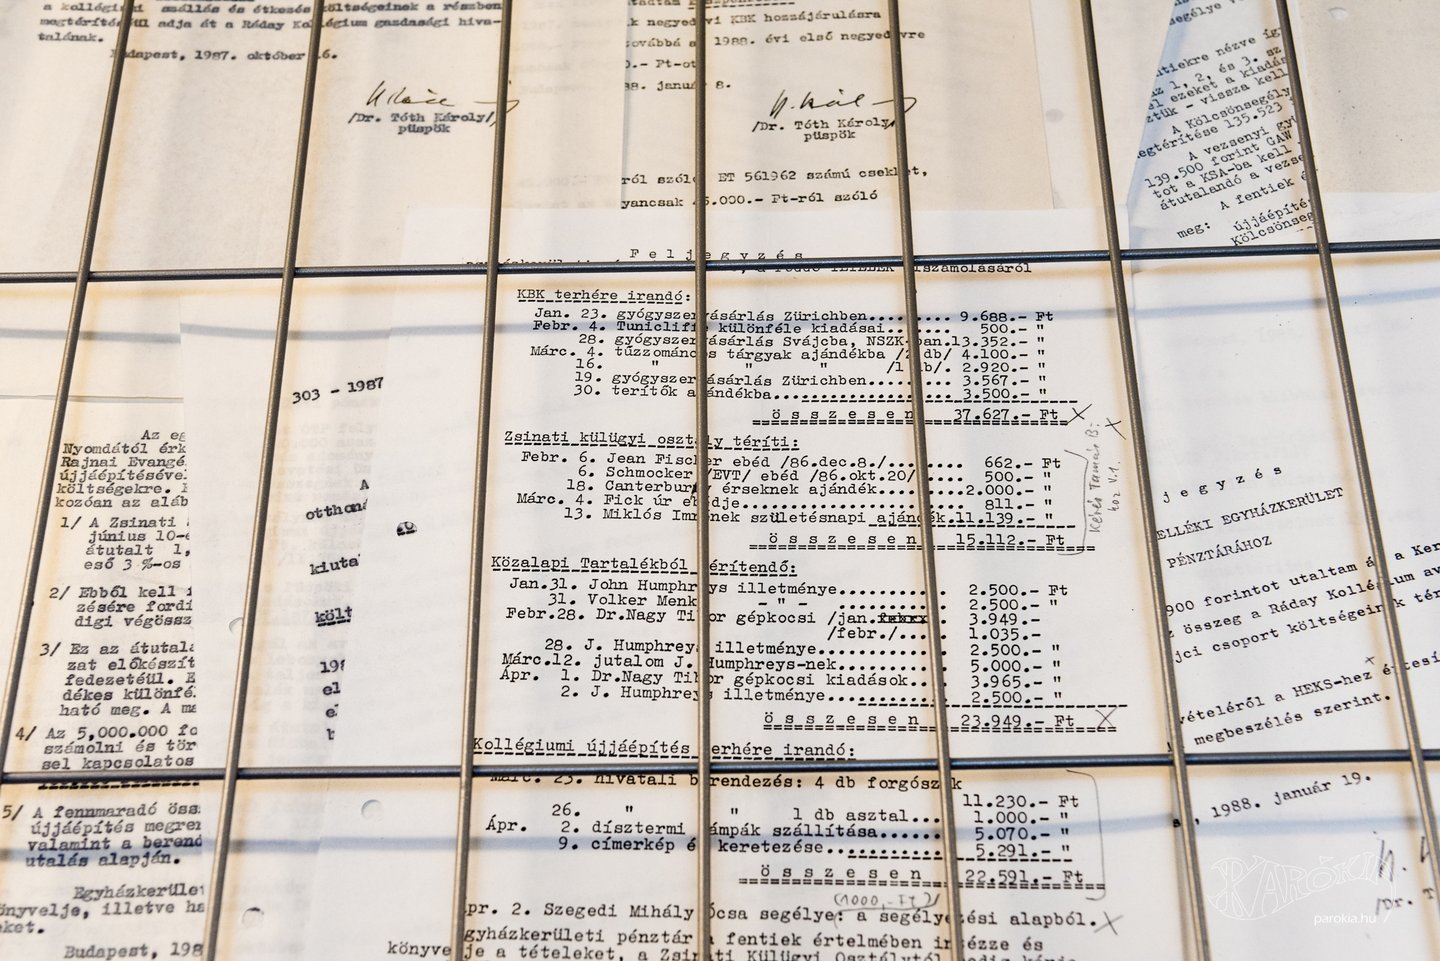 a kollégiumi szállás és étkezés költségeinek a részben
megtérítésül adja át a Ráday Kollégium gazdasági hiva-
talának.
Budapest, 1987. október 6.
/Dr. Tóth Károly/
püspök
k negyedévi KBK hozzájárulásra
ovábbá a 1988. évi első negyedévre
0.- Ft-ot
88. január 8.
/Dr. Tóth Károly/
püspök
ról szóló ET 561962 számú csekket,
yancsak 45.000.- Ft-ról szóló
F e l j e g y z é s
KBK terhére irandó:
Jan. 23. gyógyszervásárlás Zürichben......... 9.688.- Ft
Febr. 4. Tunicliffe különféle kiadásai....... 500.- "
28. gyógyszervásárlás Svájcba, NSZK-ban.13.352.- "
Márc. 4. tűzzománcos tárgyak ajándékba /2 db/ 4.100.- "
16. " " " /1 db/. 2.920.- "
19. gyógyszervásárlás Zürichben......... 3.567.- "
30. terítők ajándékba................... 3.500.- "
ö s s z e s e n 37.627.- Ft X
Zsinati külügyi osztály téríti:
Febr. 6. Jean Fischer ebéd /86.dec.8./....... 662.- Ft
6. Schmocker /EVT/ ebéd /86.okt.20/..... 500.- "
18. Canterbury érseknek ajándék.........2.000.- "
Márc. 4. Fick úr ebédje...................... 811.- "
13. Miklós Imrének születésnapi ajándék.11.139.- "
ö s s z e s e n 15.112.- Ft
Közalapi Tartalékból térítendő:
Jan.31. John Humphreys illetménye........... 2.500.- Ft
31. Volker Menk - " - ........... 2.500.- "
Febr.28. Dr.Nagy Tibor gépkocsi /jan. 3.949.-
/febr./..... 1.035.-
28. J. Humphreys illetménye............. 2.500.- "
Márc.12. jutalom J. Humphreys-nek........... 5.000.- "
Ápr. 1. Dr.Nagy Tibor gépkocsi kiadások.... 3.965.- "
2. J. Humphreys illetménye............. 2.500.- "
ö s s z e s e n 23.949.- Ft X
Kollégiumi újjáépítés terhére irandó:
Márc. 23. hivatali berendezés: 4 db forgószék
11.230.- Ft
26. " " 1 db asztal... 1.000.- "
Ápr. 2. dísztermi lámpák szállítása....... 5.070.- "
9. címerkép és keretezése............ 5.291.- "
ö s s z e s e n 22.591.- Ft
(1000,-Ft)
pr. 2. Szegedi Mihály Ócsa segélye: a segélyezési alapból. X
gyházkerületi pénztár a fentiek értelmében intézze és
könyvelje a tételeket, a Zsinati Külügyi Osztálytól
303 - 1987
A
otthona
kiuta
költ
198
el
Az eg
Nyomdától érk
Rajnai Evangé
újjáépítéséve
költségekre.
kozóan az aláb
1/ A Zsinati
június 10-é
átutalt 1,
eső 3 %-os
2/ Ebből kell
zésére fordí
digi végössz
3/ Ez az átutalá
zat előkészít
fedezetéül. E
dékes különfé
ható meg. A ma
4/ Az 5,000.000 fo
számolni és tör
sel kapcsolatos
5/ A fennmaradó össz
újjáépítés megren
valamint a berend
utalás alapján.
Egyházkerület
önyvelje, illetve ha
eket.
Budapest, 198
segélye v
entiekre nézve így
az 1, 2, és 3. sz
el ezeket a kiadás
ztük - vissza kell
A Kölcsönsegély
megtérítése 135.523
A vezsenyi gy
139.500 forint GAW
tot a KSA-ba kell
átutalandó a vezse
A fentiek é
meg: újjáépíté
Kölcsönseg
j e g y z é s
ELLÉKI EGYHÁZKERÜLET
PÉNZTÁRÁHOZ
900 forintot utaltam át a Ker
z összeg a Ráday Kollégium av
jci csoport költségeinek tér
vételéről a HEKS-hez értesí
megbeszélés szerint.
, 1988. január 19.
/Dr. T
PARÓKIA
parokia.hu